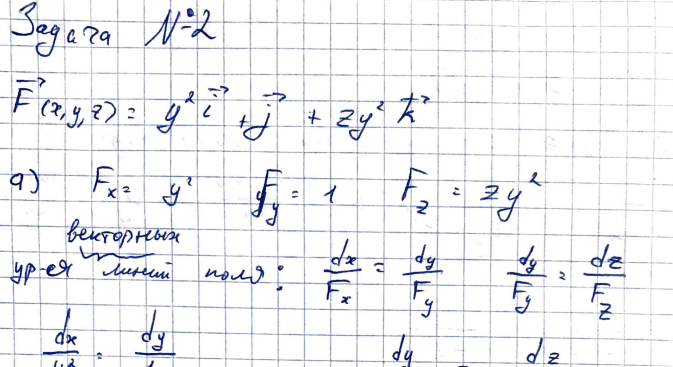 Задача №2
F⃗(x,y,z) = y² i⃗ + j⃗ + zy² k⃗
а) Fx = y² Fy = 1 Fz = zy²
векторных
ур-ея линий поля: dx/Fx = dy/Fy dy/Fy = dz/Fz
dx/y² = dy/1 dy dz